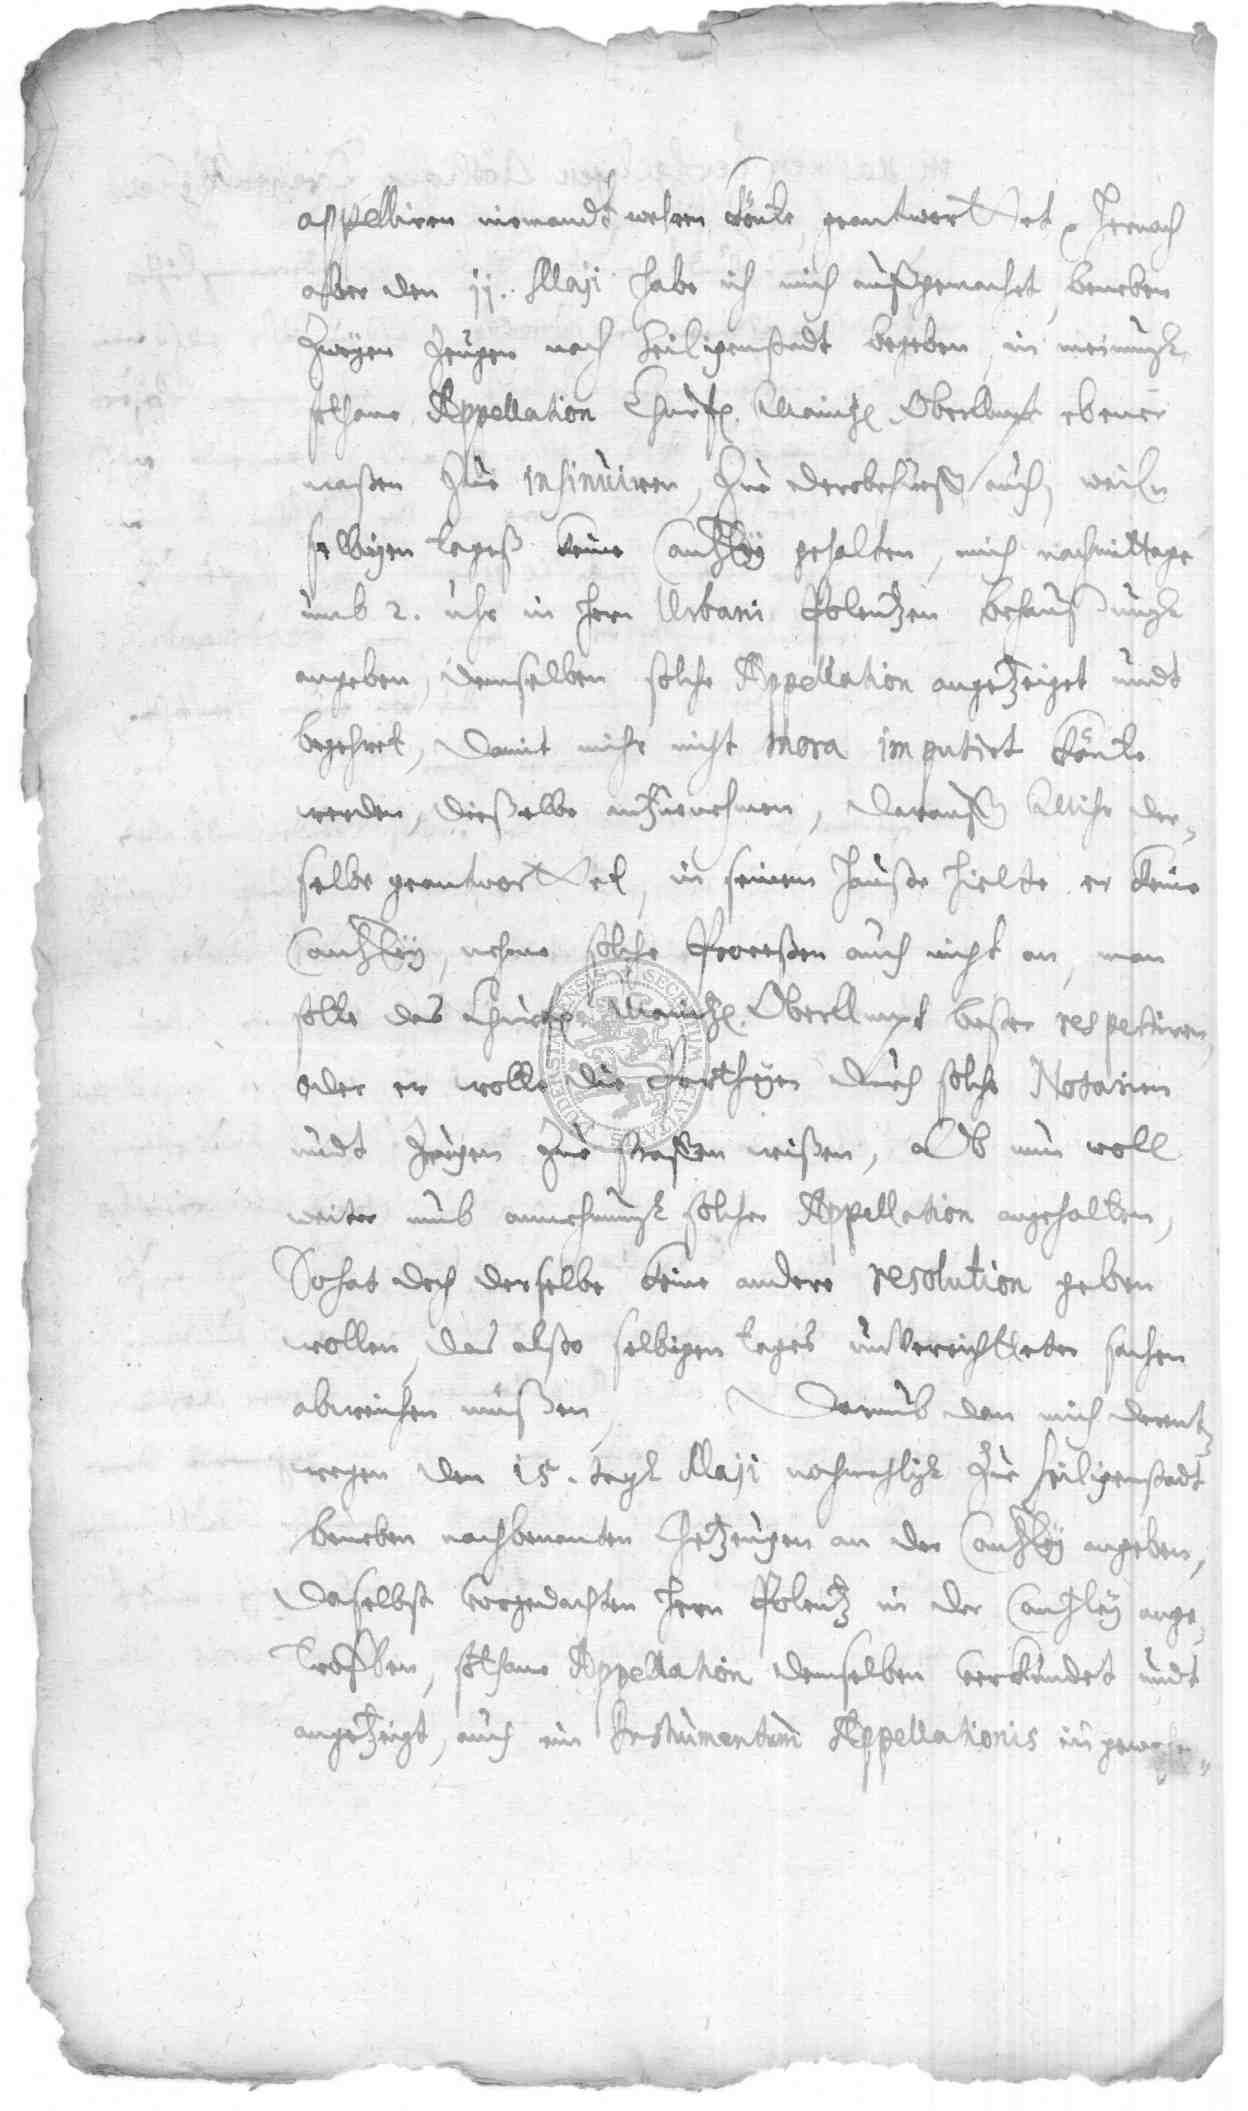 appelliren niemandt wehren könte, geantworttet, Hernach
aber den 11. Maji habe ich mich aufgemacht, beneben
zweyen Zeugen nach Heiligenstadt begeben, in meinungk
sothane Appellation Churf. Maintz. OberAmpt ebener
maßen zue insinuiren, zue derobehueff auch, weiln
selbigen tageß keine Cantzley gehalten, mich nachmittage
umb 2. uhr in Hern Urbani Polentzen behausungk
angeben, demselben solche Appellation angezeiget undt
begehret, damit mihr nicht mora imputirt könte
werden, dieselbe anzuenehmen, darauff Mihr der,,
selbe geantworttet, in seinem Hauße hielte er keine
Cantzley, nehme solche Proceßen auch nicht an, man
solle das Churf. Maintz. OberAmpt beßer respectiren,
oder er wolle die Partheyen durch solche Notarien
undt Zeugen zue straffen wißen, Ob nun woll
weiter umb annehmungk solcher Appellation angehalten,
So hat doch derselbe keine andere resolution geben
wollen, das also selbigen tages unverrichteter sachen
abweichen müßen, Darumb dan mich derent
wegen den 15. tagk Maji nochmahligk zue Heiligenstadt
beneben nachbenanten Gezeugen an der Cantzley angeben,
daselbst vorgedachten Hern Polentz in der Cantzley ange,,
troffen, sothane Appellation demselben verkündet undt
angezeigt, auch ein Instrumentum Appellationis in
DUDERSTADENSIS SECRETUM CIVITATIS